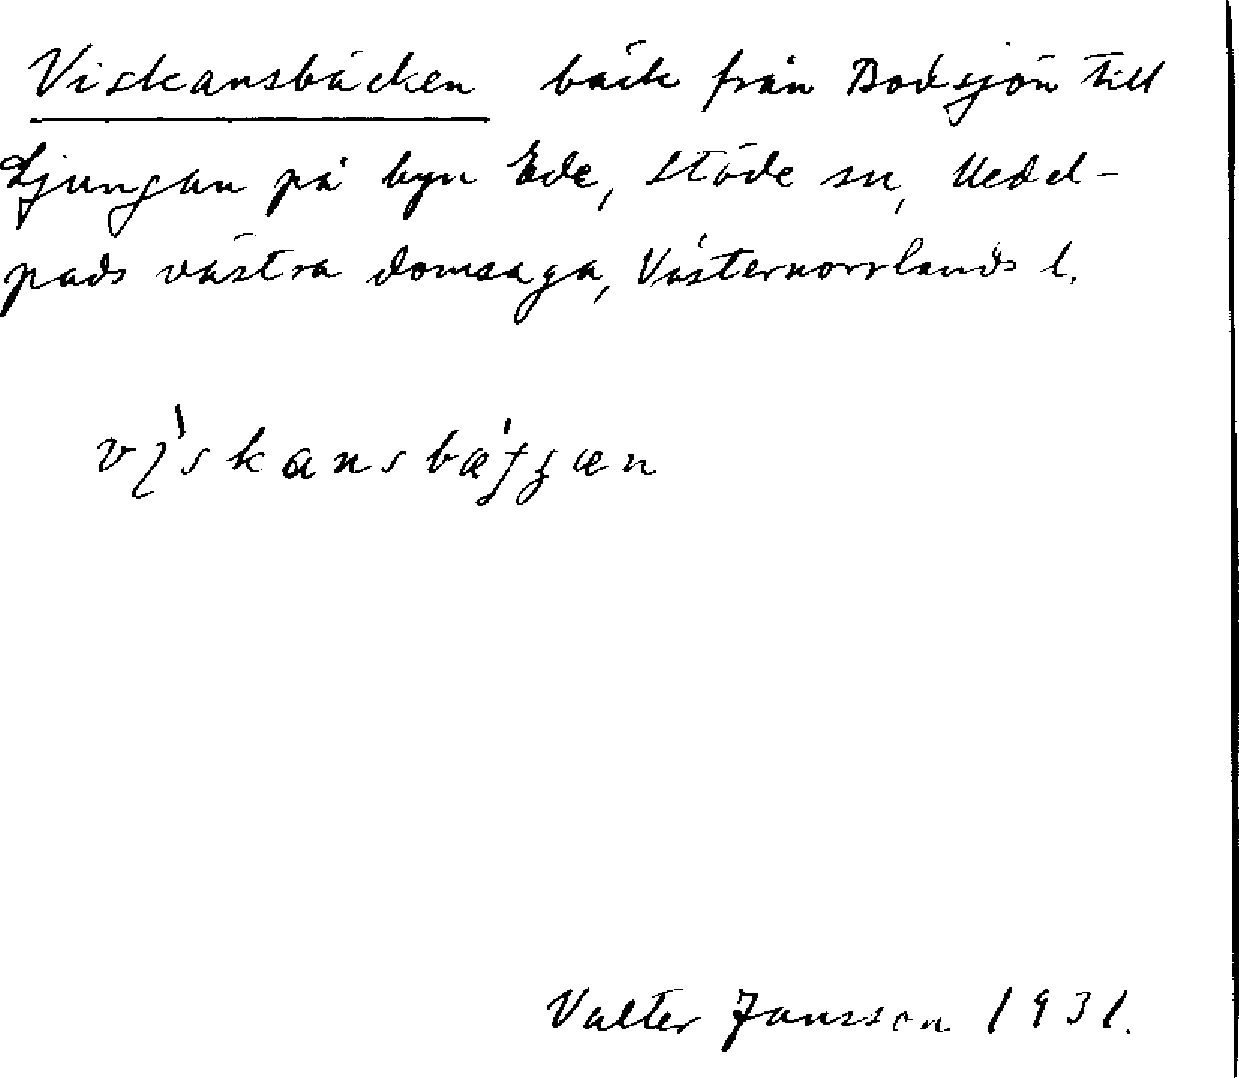 Viskansbäcken bäck från Bodsjön till
Ljungan på byn Ede, Stöde sn, Medel-
pads västra domsaga, Västernorrlands l.
Valter Jansson 1931.